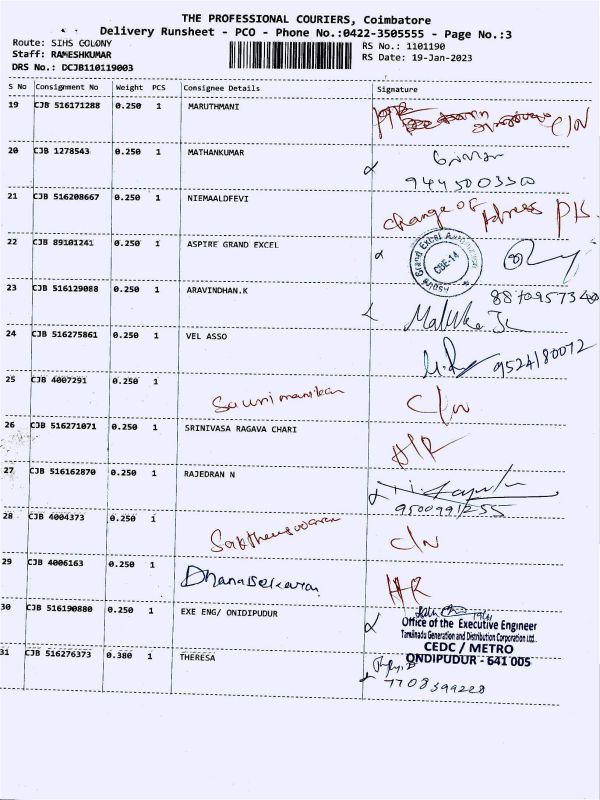 THE PROFESSIONAL COURIERS, Coimbatore
Delivery Runsheet - PCO - Phone No.:0422-3505555 - Page No.:3
Route: SIHS COLONY RS No.: 1101190
Staff: RAMESHKUMAR RS Date: 19-Jan-2023
DRS No.: DCJB110119003
S No Consignment No Weight PCS Consignee Details Signature
19 CJB 516171288 0.250 1 MARUTHMANI C/N
20 CJB 1278543 0.250 1 MATHANKUMAR
9445003350
21 CJB 516208667 0.250 1 NIEMAALDFEVI change of Adress P/S
22 CJB 89101241 0.250 1 ASPIRE GRAND EXCEL CBE-14
23 CJB 516129088 0.250 1 ARAVINDHAN.K 8870957340
24 CJB 516275861 0.250 1 VEL ASSO 9524180072
25 CJB 4007291 0.250 1 C/N
26 CJB 516271071 0.250 1 SRINIVASA RAGAVA CHARI H/R
27 CJB 516162870 0.250 1 RAJEDRAN N
9500991255
28 CJB 4004373 0.250 1 C/N
29 CJB 4006163 0.250 1 Dhanasekaran H/R
30 CJB 516190880 0.250 1 EXE ENG/ ONIDIPUDUR
Office of the Executive Engineer
Tamilnadu Generation and Distribution Corporation Ltd.
CEDC / METRO
ONDIPUDUR - 641 005
31 CJB 516276373 0.380 1 THERESA
7708399228